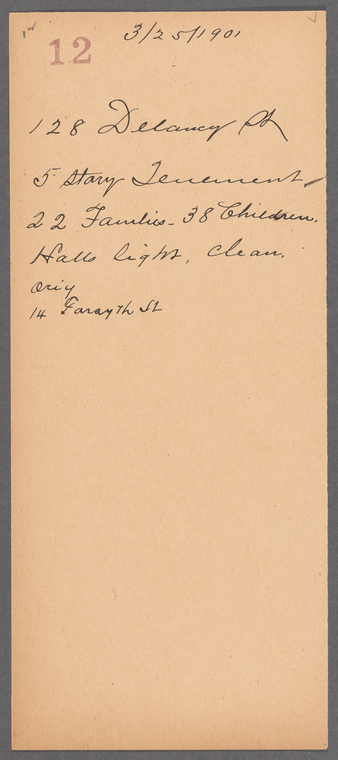 1st
3/25/1901
12
128 Delancy St
5 story Tenement
22 Families - 38 Children.
Halls light, clean.
orig
14 Forsyth St